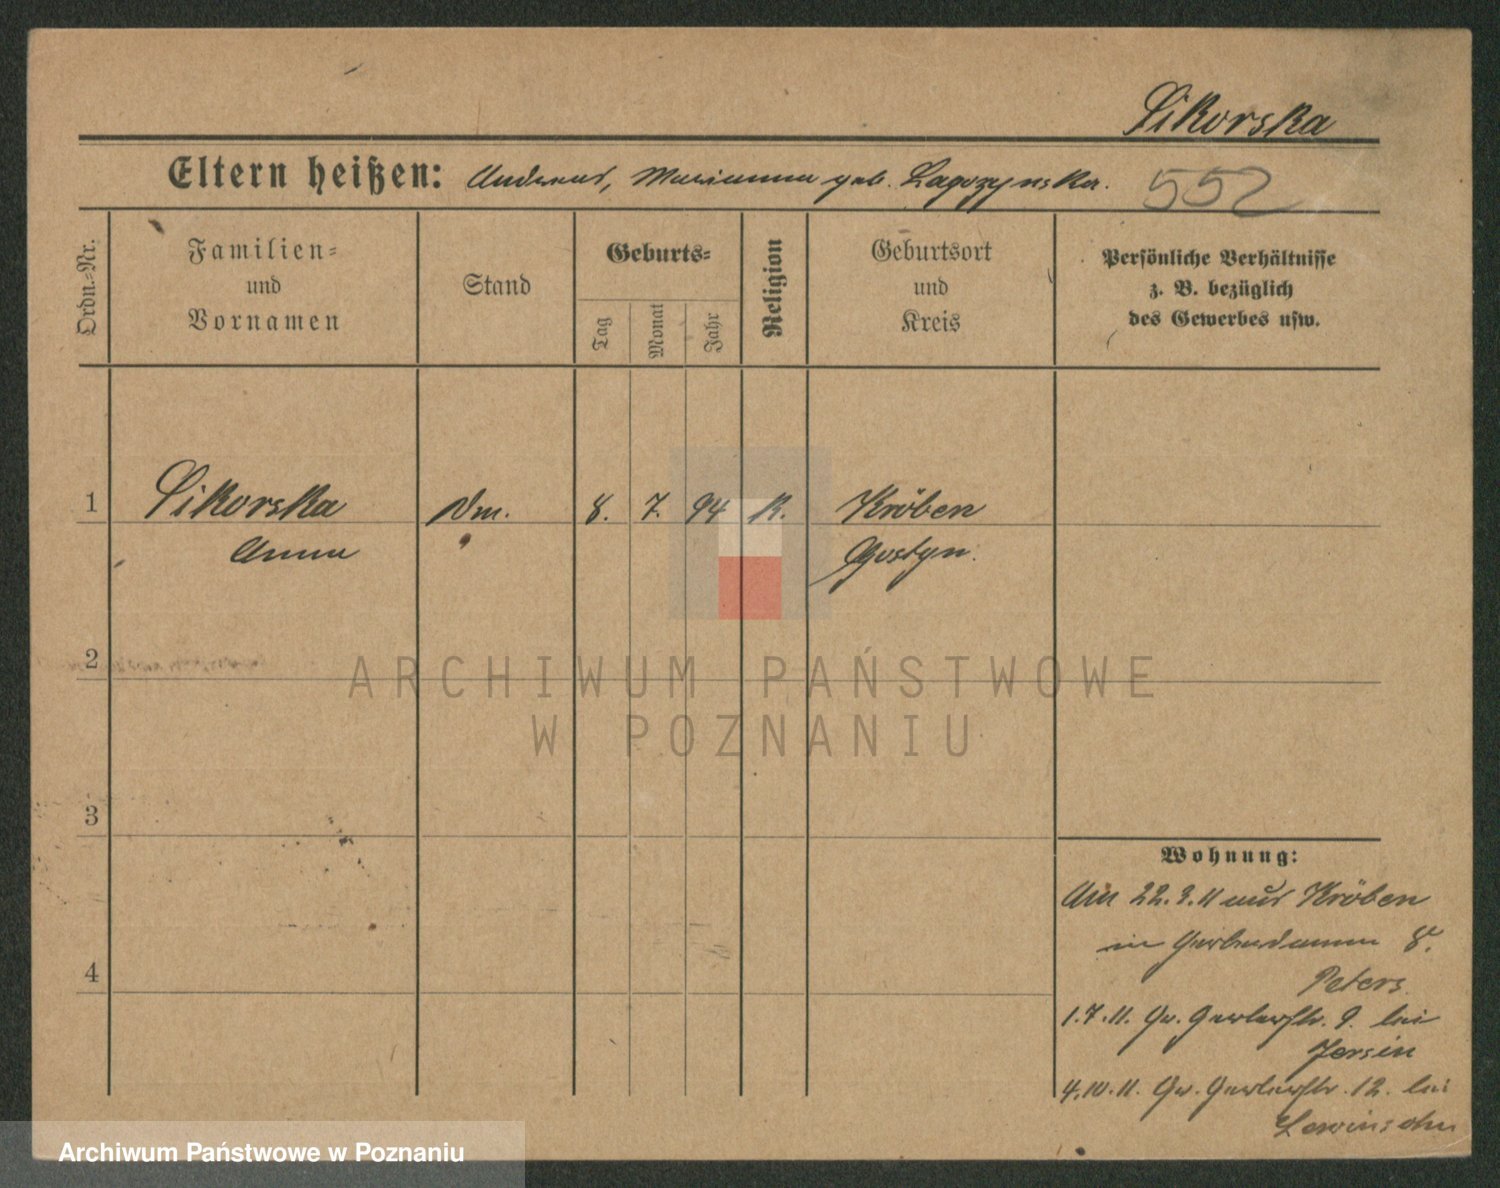 Sikorska
Eltern heißen: Andreas, Marianna geb. Lagozynska.
552
Ordn.-Nr.
Familien-
und
Vornamen
Stand
Geburts-
Tag
Monat
Jahr
Religion
Geburtsort
und
Kreis
Persönliche Verhältnisse
z. B. bezüglich
des Gewerbes usw.
1 Sikorska Dm. 8. 7. 94 K. Kröben
Anna Gostyn.
2
3
4
Wohnung:
Am 22.3.11 aus Kröben
in Gerberdamm 8.
Peters.
1.7.11. Gr. Gerberstr. 9. bei
Jersin
4.10.11. Gr. Gerberstr. 12. bei
Lewinsohn
ARCHIWUM PAŃSTWOWE
W POZNANIU
Archiwum Państwowe w Poznaniu